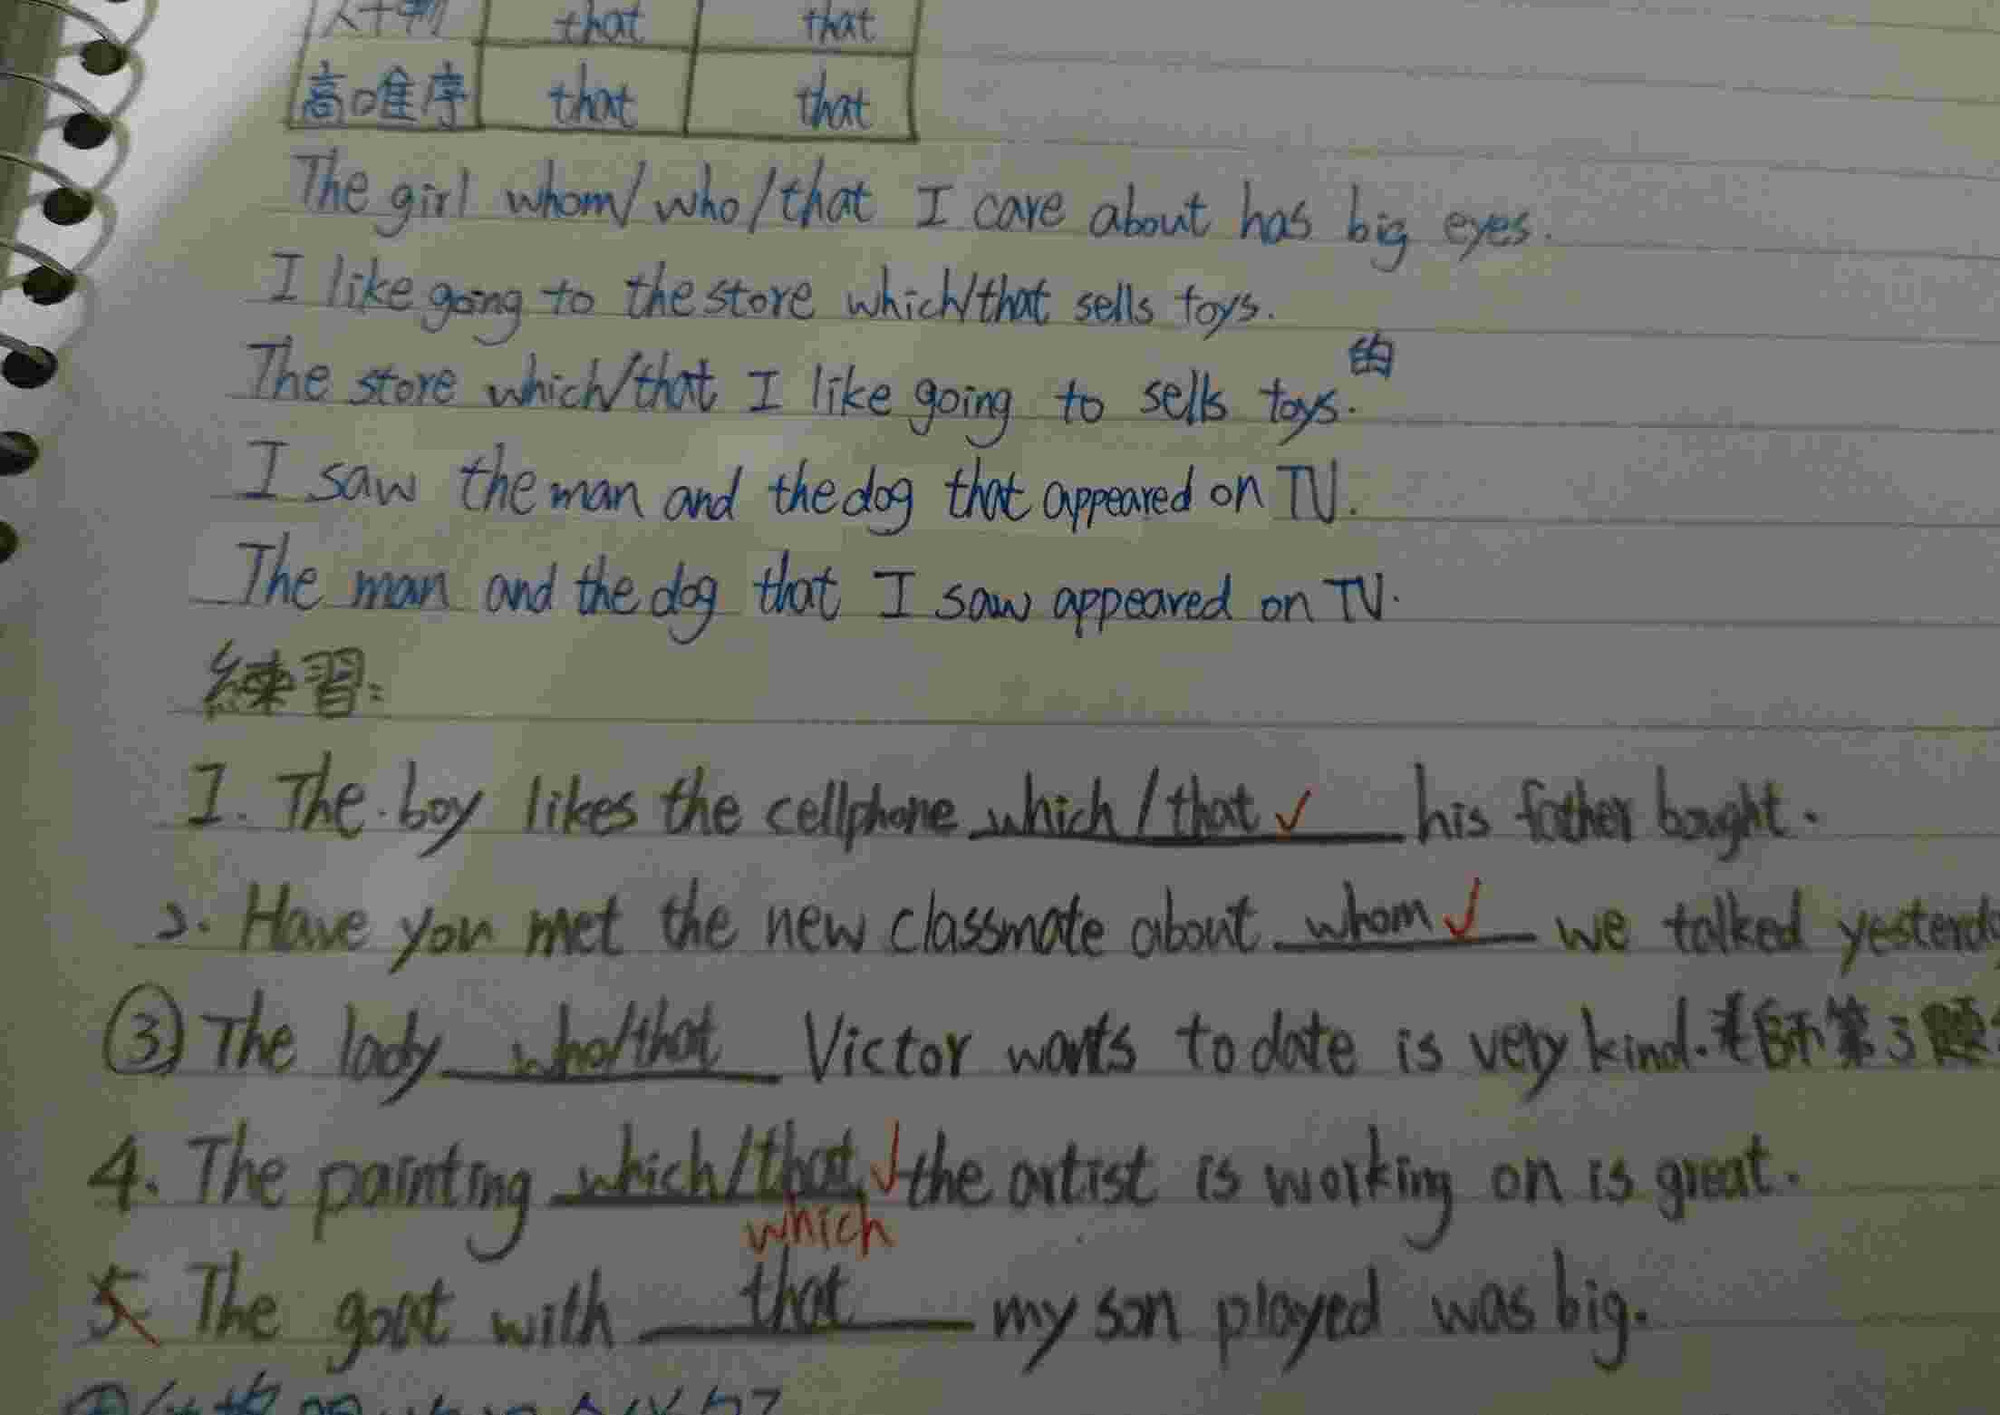 人+物 that that
高唯序 that that
The girl whom/who/that I care about has big eyes.
I like going to the store which/that sells toys.
的
The store which/that I like going to sells toys.
I saw the man and the dog that appeared on TV.
The man and the dog that I saw appeared on TV.
練習:
1. The boy likes the cellphone which/that ✓ his father bought.
2. Have you met the new classmate about whom ✓ we talked
③ The lady who/that Victor wants to date is very kind. 老師第3題
4. The painting which/that ✓ the artist is working on is great.
which
5. The goat with that my son played was big.